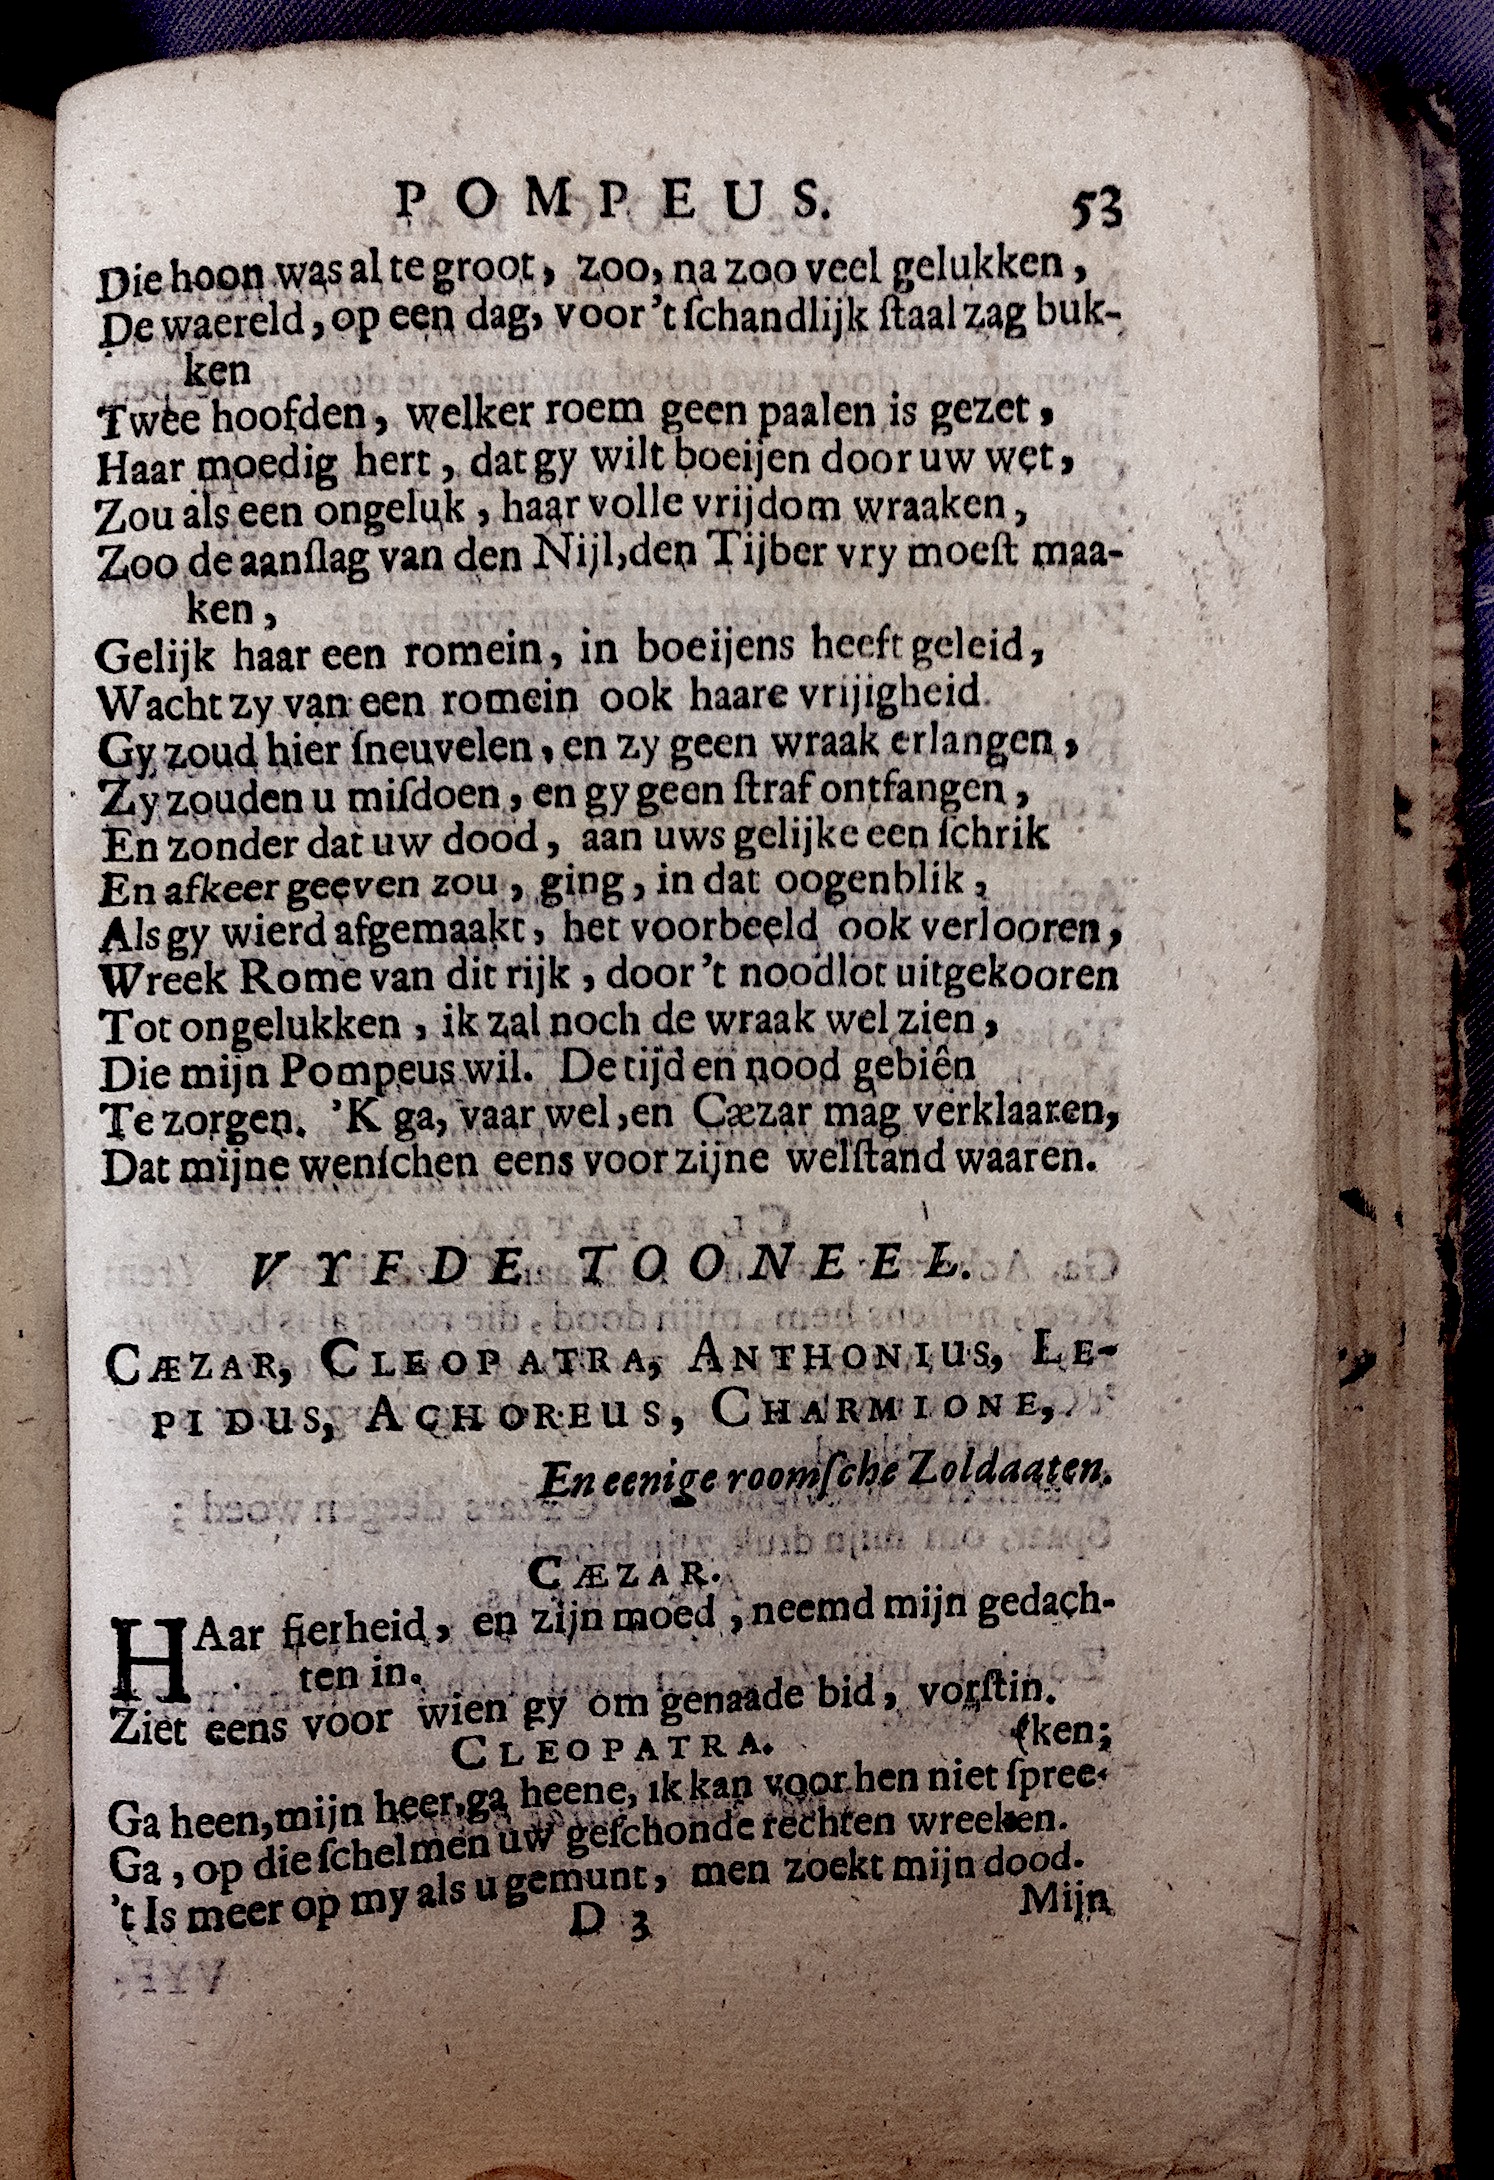 POMPEUS. 53
Die hoon was al te groot, zoo, na zoo veel gelukken,
De waereld, op een dag, voor 't ſchandlijk ſtaal zag buk-
ken
Twee hoofden, welker roem geen paalen is gezet,
Haar moedig hert, dat gy wilt boeijen door uw wet,
Zou als een ongeluk, haar volle vrijdom wraaken,
Zoo de aanſlag van den Nijl, den Tijber vry moeſt maa-
ken,
Gelijk haar een romein, in boeijens heeft geleid,
Wacht zy van een romein ook haare vrijigheid
Gy zoud hier ſneuvelen, en zy geen wraak erlangen,
Zy zouden u miſdoen, en gy geen ſtraf ontfangen,
En zonder dat uw dood, aan uws gelijke een ſchrik
En afkeer geeven zou, ging, in dat oogenblik,
Als gy wierd afgemaakt, het voorbeeld ook verlooren,
Wreek Rome van dit rijk, door 't noodlot uitgekooren
Tot ongelukken, ik zal noch de wraak wel zien,
Die mijn Pompeus wil. De tijd en nood gebiên
Te zorgen. 'K ga, vaar wel, en Cæzar mag verklaaren,
Dat mijne wenſchen eens voor zijne welſtand waaren.
VYFDE TOONEEL.
CÆZAR, CLEOPATRA, ANTHONIUS, LE-
PIDUS, ACHOREUS, CHARMIONE,
En eenige roomſche Zoldaaten.
CÆZAR.
HAar fierheid, en zijn moed, neemd mijn gedach-
ten in.
Ziet eens voor wien gy om genaade bid, vorſtin.
CLEOPATRA. (ken;
Ga heen, mijn heer, ga heene, ik kan voor hen niet ſpree-
Ga, op die ſchelmen uw geſchonde rechten wreeken.
't Is meer op my als u gemunt, men zoekt mijn dood.
D 3 Mijn